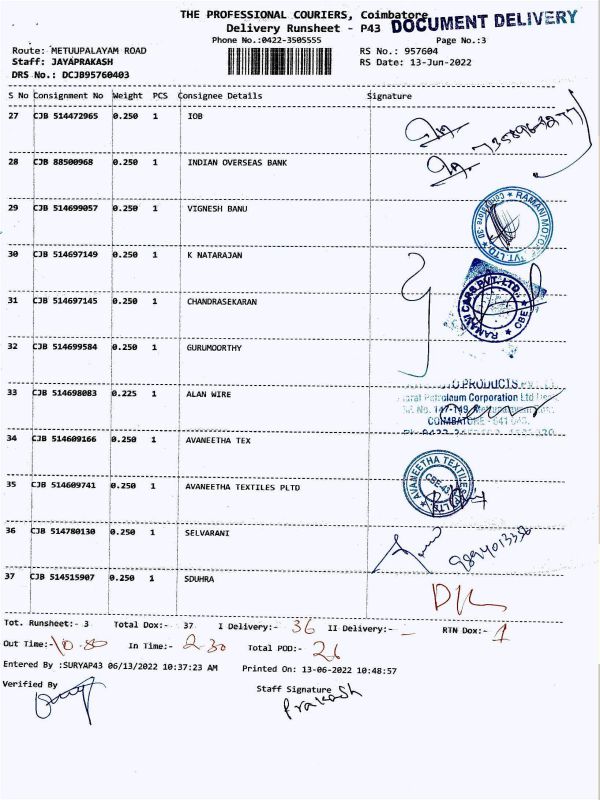 THE PROFESSIONAL COURIERS, Coimbatore
DOCUMENT DELIVERY
Delivery Runsheet - P43
Phone No.:0422-3505555
Page No.:3
Route: METUUPALAYAM ROAD
RS No.: 957604
Staff: JAYAPRAKASH
RS Date: 13-Jun-2022
DRS No.: DCJB95760403
S No Consignment No Weight PCS Consignee Details Signature
27 CJB 514472965 0.250 1 IOB
28 CJB 88500968 0.250 1 INDIAN OVERSEAS BANK
29 CJB 514699057 0.250 1 VIGNESH BANU
RAMANI MOTO PVT. LTD. Coimbatore-30
30 CJB 514697149 0.250 1 K NATARAJAN
31 CJB 514697145 0.250 1 CHANDRASEKARAN
RAMANI CARS PVT. LTD. CBE
32 CJB 514699584 0.250 1 GURUMOORTHY
PRODUCTS
33 CJB 514698083 0.225 1 ALAN WIRE
Petroleum Corporation Ltd
No. 147-149,
COIMBATORE - 641
34 CJB 514609166 0.250 1 AVANEETHA TEX
35 CJB 514609741 0.250 1 AVANEETHA TEXTILES PLTD
AVANEETHA TEXTILES LTD CBE-43
36 CJB 514780130 0.250 1 SELVARANI
37 CJB 514515907 0.250 1 SDUHRA
Tot. Runsheet:- 3 Total Dox:- 37 I Delivery:- 36 II Delivery:- - RTN Dox:- 1
Out Time:- In Time:- 2-30 Total POD:- 26
Entered By :SURYAP43 06/13/2022 10:37:23 AM Printed On: 13-06-2022 10:48:57
Verified By
Staff Signature
Prakash